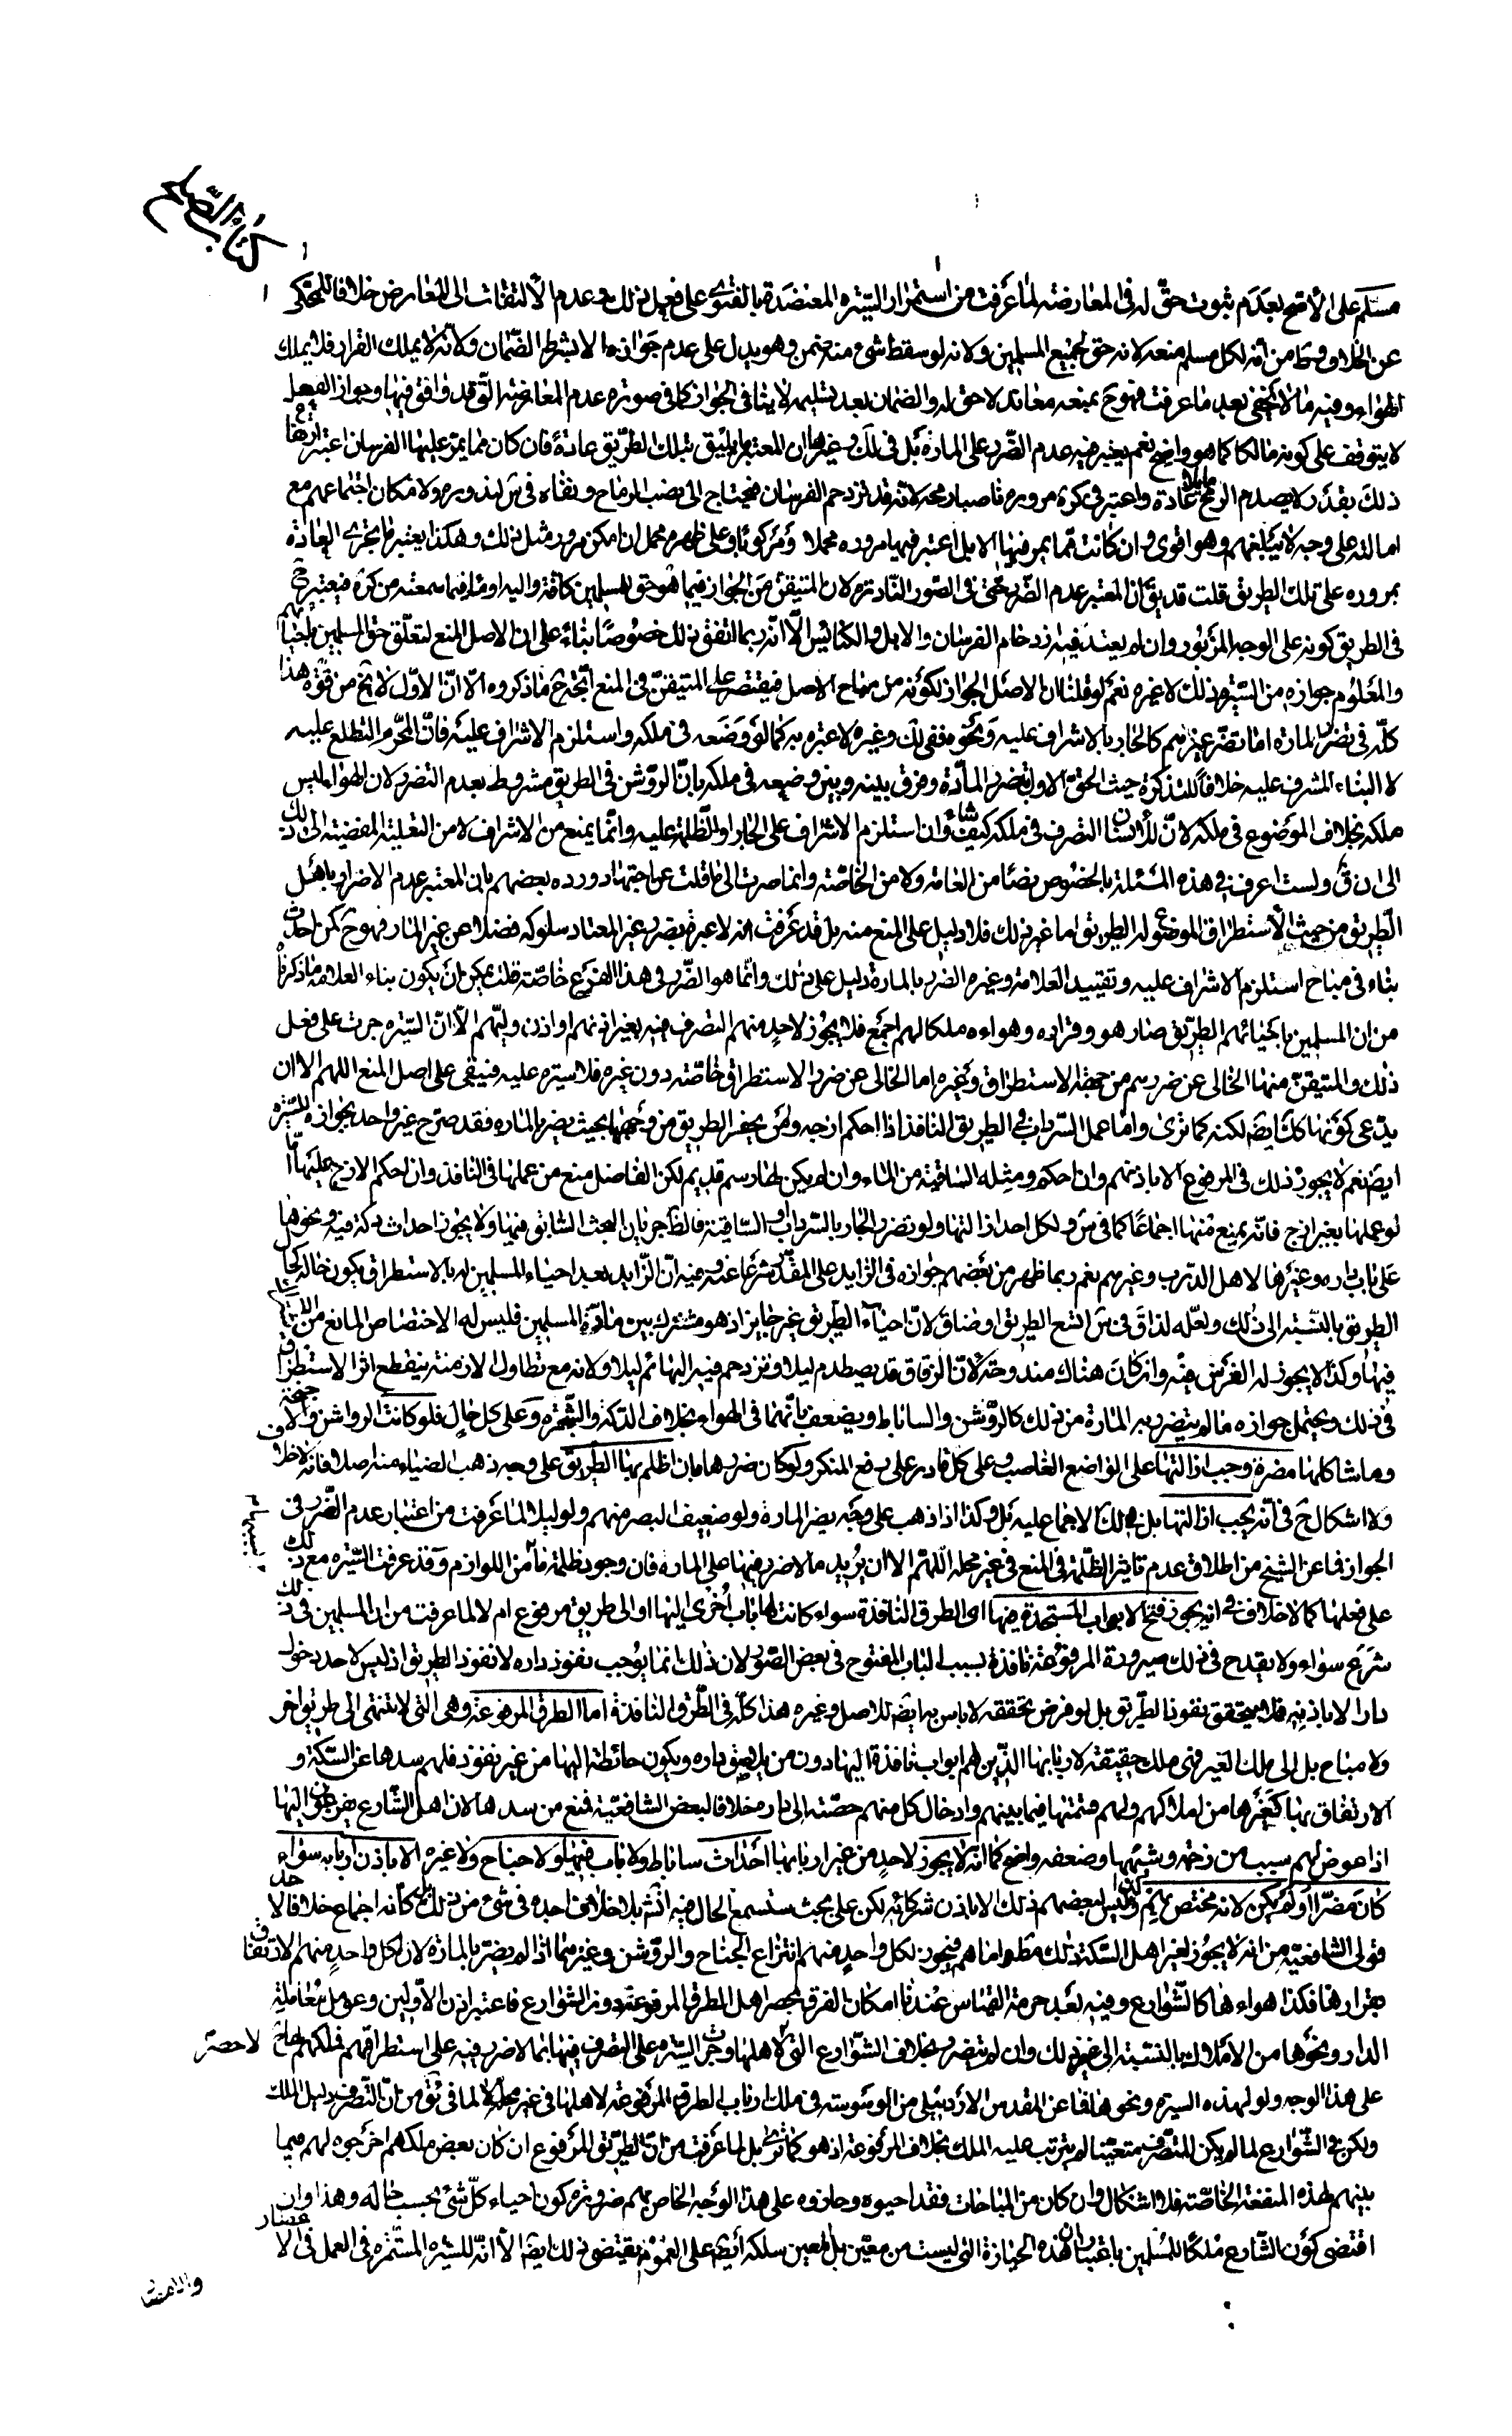 كتاب الصلح
مسلم على الأصح بعدم ثبوت حق له في المعارضة لما عرفت من استمرار السيرة المعتضدة بالفتوى على فعل ذلك وعدم الالتفات الى المعارض خلافا للمحكي
عن الخلاف وط من أنه لكل مسلم منعه لانه حق لجميع المسلمين ولانه لو سقط شئ منه ضمن وهو يدل على عدم جوازه الا بشرط الضمان ولانه لا يملك القرار فلا يملك
الهواء وفيه ما لا يخفى بعد ما عرفت فهو ح بمنعه معاند لا حق له والضمان بعد تسليمه لا ينافي الجواز كما في صورة عدم المعارضة التي قد وافق فيها وجواز الفعل
لا يتوقف على كونه مالكا كما هو واضح نعم يعتبر فيه عدم الضرر على المارة بل في لك وغيرها ان المعتبر ما يليق بتلك الطريق عادة فان كان مما يمر عليها الفرسان اعتبر ارتفاع
ذلك بقدر لا يصدم الرمح مايلا عادة واعتبر في كرة مروره ناصبا رمحه لانه قد تزدحم الفرسان فيحتاج الى نصب الرماح ونفاه في س لندوره ولامكان اجتماعهم مع
امالته على وجه لا يبلغهم وهو اقوى وان كانت مما يمر فيها الابل اعتبر فيها مروره محملا ومركوبا وعلى ظهره محمل ان امكن مرور مثل ذلك وهكذا يعتبر ما يجري العادة
بمروره على تلك الطريق قلت قد يق ان المعتبر عدم الضرر حتى في الصور النادرة لان المتيقن من الجواز فيما هو حق للمسلمين كافة واليه اومأ فيما سمعته من كرة فيعتبر ح
في الطريق كونه على الوجه المزبور وان لم يعتد فيه ازدحام الفرسان والابل والكنائس الا انه ربما اتفق ذلك خصوصا بناء على ان الاصل المنع لتعلق حق المسلمين باحيائهم
والمعلوم جوازه من السيرة ذلك لا غيره نعم لو قلنا ان الاصل الجواز لكونه من مباح الاصل فيقتصر على المتيقن في المنع اتجه ح ما ذكروه الا ان الاول لا يخ من قوة هذا
كله في تضرر المارة اما تضرر غيرهم كالجار بالاشراف عليه ونحوه ففي لك وغيره لا عبرة به كما لو وضعه في ملكه واستلزم الاشراف عليه فان المحرم التطلع عليه
لا البناء المشرف عليه خلافا للتذكرة حيث الحق الاول بتضرر المارة وفرق بينه وبين وضعه في ملكه بان الروشن في الطريق مشروط بعدم التضرر لان الهواء ليس
ملكه بخلاف الموضوع في ملكه لان للانسان التصرف في ملكه كيف شاء وان استلزم الاشراف على الجار او الظلمة عليه وانما يمنع من الاشراف لا من التعلية المفضية الى ذلك
الى ان ق ولست اعرف في هذه المسئلة بالخصوص نصا من العامة ولا من الخاصة وانما صرت الى ما قلت عن اجتهاد ورده بعضهم بان المعتبر عدم الاضرار باهل
الطريق من حيث الاستطراق الموضوع له الطريق اما غير ذلك فلا دليل على المنع منه بل قد عرفت انه لا عبرة بضرر غير المعتاد سلوكه فضلا عن غير المار فهو ح كمن احدث
بناء في مباح استلزم الاشراف عليه وتقييد العلامة وغيره الضرر بالمارة دليل على ذلك وانما هو الضرر في هذا الفرع خاصة قلت يمكن ان يكون بناء العلامة ما ذكرنا
من ان المسلمين باحيائهم الطريق صار هو وقراره وهواءه ملكا لهم اجمع فلا يجوز لاحد منهم التصرف فيه بغير اذنهم او اذن وليهم الا ان السيرة جرت على فعل
ذلك والمتيقن منها الخالى عن ضررهم من جهة الاستطراق وغيره اما الخالى عن ضرر الاستطراق خاصة دون غيره فلا سيرة عليه فتبقى على اصل المنع اللهم الا ان
يدعى كونها كك ايضا لكنه كما ترى واما عمل السرداب في الطريق النافذ اذا احكم ازجه ولم يحفر الطريق من وجهها بحيث يضر بالمارة فقد صرح غير واحد بجوازه للسيرة
ايضا نعم لا يجوز ذلك في المرفوع الا باذنهم وان احكم ومثله الساقية من الماء وان لم يكن لها رسم قديم لكن الفاضل منع من عملها في النافذ وان احكم الازج عليها اما
لو عملها بغير ازج فانه يمنع منها اجماعا كما في س ولكل احد ازالتها ولو تضرر الجار بالسرداب او الساقية فالظاهر جريان البحث السابق فيها ولا يجوز احداث دكة فيه ونحوها
على باب داره وغيرها لاهل الدرب وغيرهم نعم ربما ظهر من بعضهم جوازه في الزايد على المقدر شرعا عنده وفيه ان الزايد بعد احياء المسلمين له بالاستطراق يكون حاله كحال
الطريق بالنسبة الى ذلك ولعله لذا ق في س اتسع الطريق او ضاق لان احياء الطريق غير جايز اذ هو مشترك بين مارة المسلمين فليس له الاختصاص المانع من الاشتراك
فيها وكذا لا يجوز له الغرس فيه وان كان هناك مندوحة لان الزقاق قد يصطدم ليلا وتزدحم فيه البهائم ليلا ولانه مع تطاول الازمنة ينقطع اثر الاستطراق
في ذلك ويحتمل جوازه ما لم يتضرر به المارة من ذلك كالروشن والساباط ويضعف بانهما في الهواء بخلاف الدكة والشجرة وعلى كل حال فلو كانت الرواشن والاجنحة
وما شاكلها مضرة وجب ازالتها على الواضع الغاصب وعلى كل قادر على رفع المنكر ولو كان ضررها بان اظلم بها الطريق على وجه ذهب الضياء منه اصلا فانه لا خلاف
ولا اشكال ح في انه يجب ازالتها بل في لك الاجماع عليه بل وكذا اذا ذهب على وجه يضر المارة ولو ضعيف البصر منهم ولو ليلا لما عرفت من اعتبار عدم الضرر في
الجواز فما عن الشيخ من اطلاق عدم تأثير الظلمة في المنع في غير محله اللهم الا ان يريد ما لا ضرر فيها على المارة فان وجود ظلمة ما من اللوازم وقد عرفت السيرة مع ذلك
على فعلها كما لا خلاف في انه يجوز فتح الابواب المستجدة فيها اى الطرق النافذة سواء كانت لها باب اخرى اليها او الى طريق مرفوع ام لا لما عرفت من ان المسلمين في ذلك
شرع سواء ولا يقدح في ذلك صيرورة المرفوعة نافذة بسبب الباب المفتوح في بعض الصور لان ذلك انما يوجب نفوذ داره لا نفوذ الطريق اذ ليس لاحد دخول
داره الا باذنه فلا يتحقق نفوذ الطريق بل لو فرض تحققه لا باس به ايضا للاصل وغيره هذا كله في الطرق النافذة اما الطرق المرفوعة وهى التى لا تنتهى الى طريق اخر
ولا مباح بل الى ملك الغير فهى ملك حقيقة لاربابها الذين لهم ابواب نافذة اليها دون من يلاصق داره ويكون حائطه اليها من غير نفوذ فلهم سدها عن السكة و
الارتفاق بها كغيرها من املاكهم ولهم قسمتها فيما بينهم وادخال كل منهم حصته الى داره خلافا لبعض الشافعية فمنع من سدها لان اهل الشارع يفزعون اليها
اذا عرض لهم سبب من زحمة وشبهها وضعفه واضح كما انه لا يجوز لاحد من غير اربابها احداث ساباط ولا باب فيها ولا جناح ولا غيره الا باذن اربابه سواء
كان مضرا او لم يكن لانه مختص بهم وكذا ليس لبعضهم ذلك الا باذن شركائه لكن على بحث ستسمع الحال فيه انش بلا خلاف اجده في شئ من ذلك بل كأنه اجماع خلافا لاحد
قولى الشافعية من انه لا يجوز لغير اهل السكة ذلك مط واما هم فيجوز لكل واحد منهم اشراع الجناح والروشن وغيرهما اذا لم يضر بالمارة لان لكل واحد منهم الارتفاق
بقرارها فكذا هواءها كالشوارع وفيه بعد حرمة القياس عندنا امكان الفرق بحصر اهل الطرق المرفوعة دون الشوارع فاعتبر اذن الاولين وعومل معاملة
الدار ونحوها من الاملاك بالنسبة الى غير ذلك وان لم تتضرر بخلاف الشوارع التى لا حصر لاهلها وجرت السيرة على التصرف فيها بما لا ضرر فيه على استطراقهم فملكهم لها ح
على هذا الوجه ولو لهذه السيرة ونحوها فما عن المقدس الاردبيلى من الوسوسة في ملك ارباب الطرق المرفوعة لاهلها في غير محله لا لما في ئق من ان التصرف دليل الملك
ولكن في الشوارع لما لم يكن المتصرف متعينا لم يترتب عليه الملك بخلاف المرفوعة اذ هو كما ترى بل لما عرفت من ان الطريق المرفوع ان كان بعض ملكهم اخرجوه لهم فيما
بينهم لهذه المنفعة الخاصة فلا اشكال وان كان من المباحات فقد احيوه وحازوه على هذا الوجه الخاص بهم ضرورة كون احياء كل شئ بحسب حاله وهذا وان
اقتضى كون الشارع ملكا للمسلمين باعتبار ان هذه الحيازة التى ليست من معين بل لمعين سلكه ايضا على العموم يقتضى ذلك ايضا الا انه للسيرة المستمرة في العمل في الاعصار
والامصار